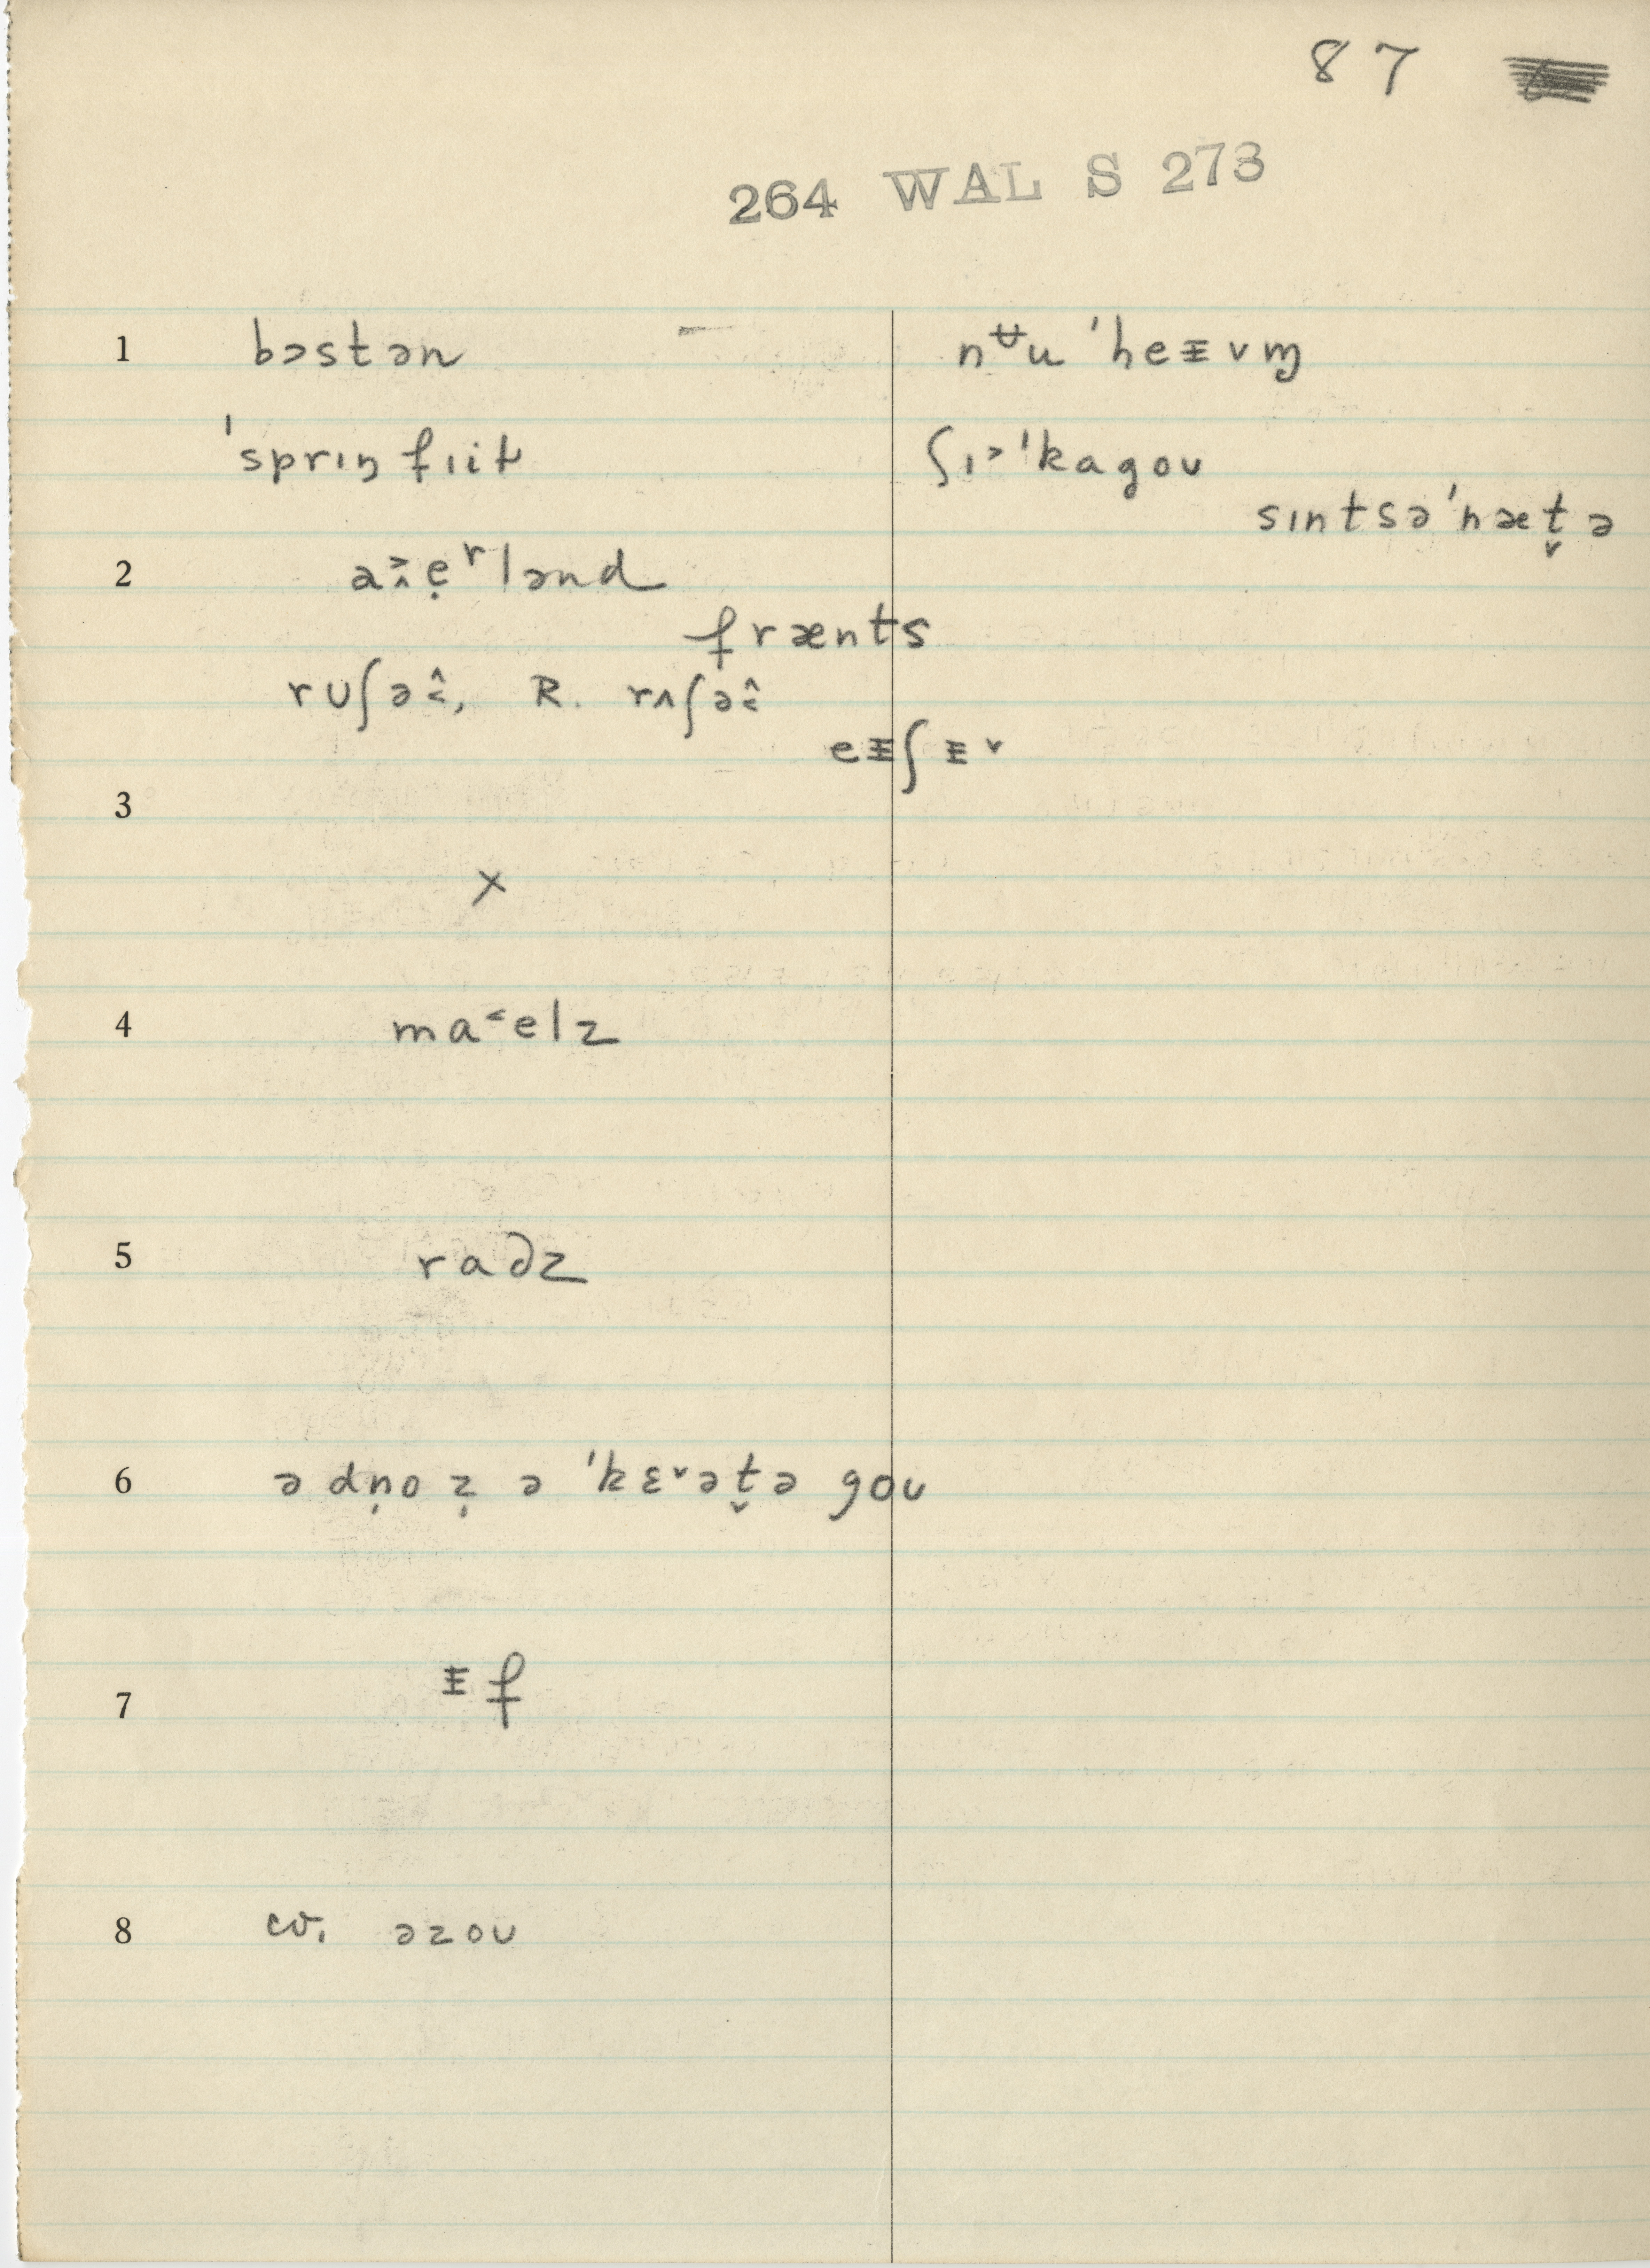 87
264 WAL S 273
1 bɔstən nʉu ˈheɪ̵vɱ
ˈsprɪŋfɪiɫ ʃɪ˃ˈkagoʊ
sɪntsəˈnæt̬ə
2 a˃̭ẹʳlənd
frænts
rʊʃə˂̂, R. rʌʃə˂̂
eɪ̵ʃɪ̵ʳ
3
×
4 ma˂elz
5 radz
6 ə dṇoẓ ə ˈkɛʳət̬ə goʊ
7 ɪ̵f
8 cv. əzoʊ